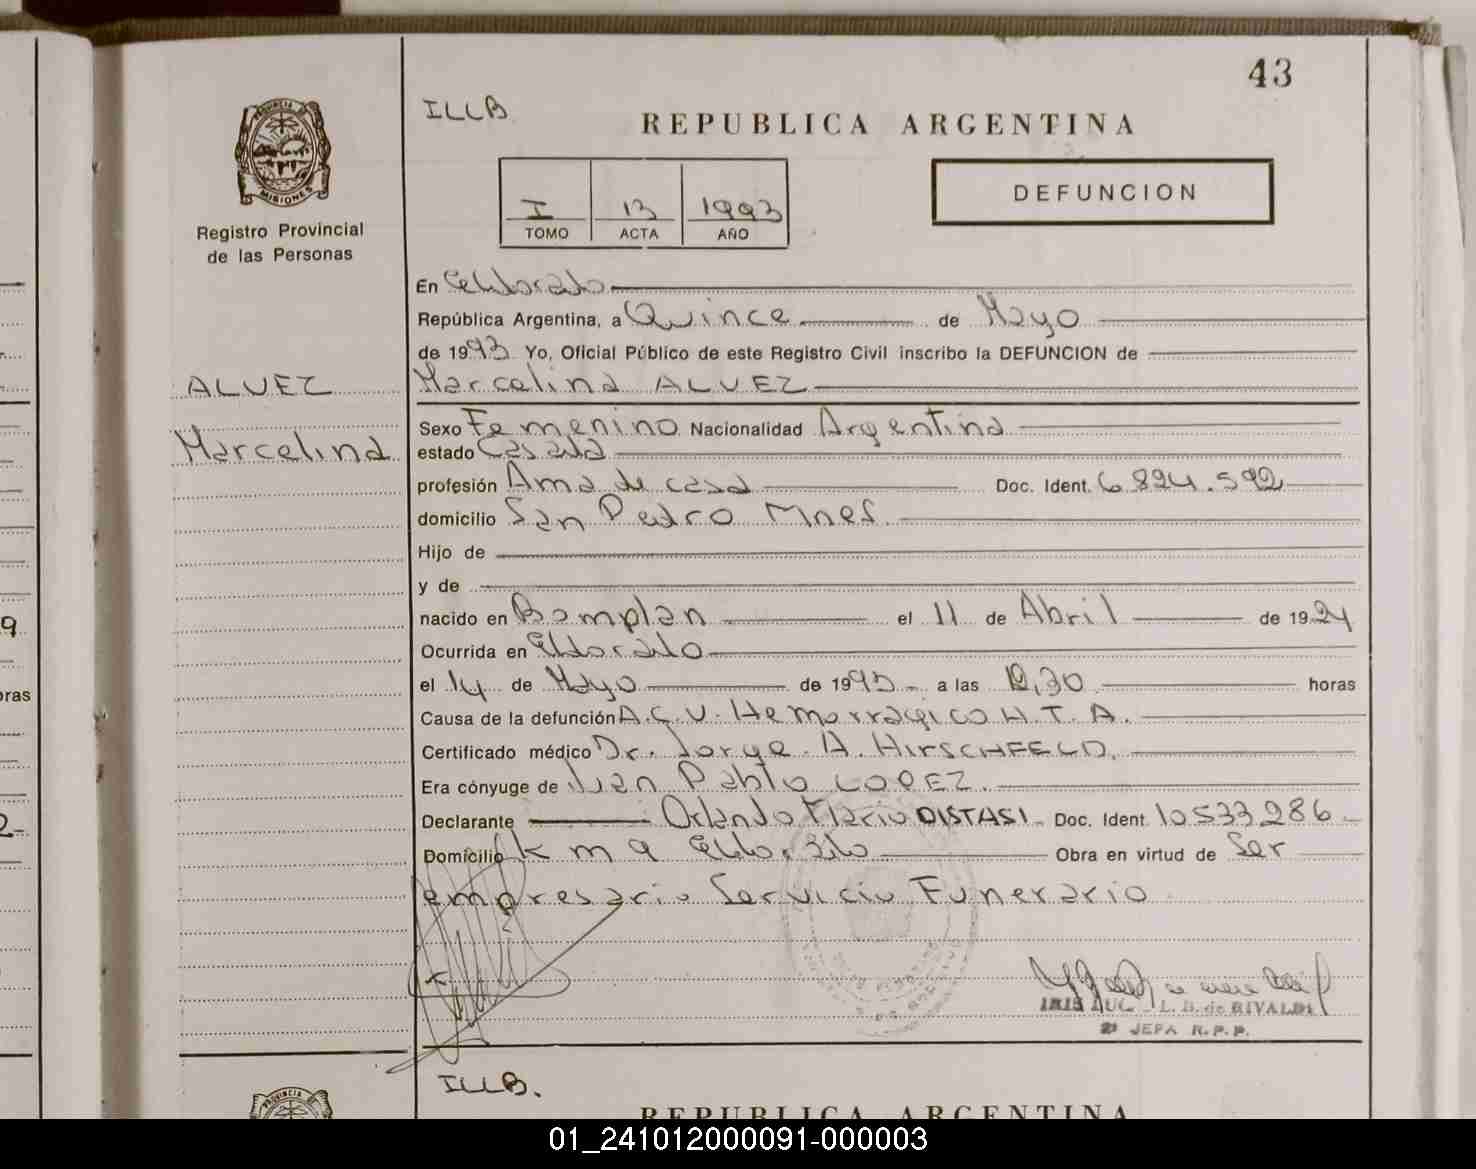 43
ILLB
REPUBLICA ARGENTINA
PROVINCIA DE
MISIONES
Registro Provincial
de las Personas
I 13 1993
TOMO ACTA AÑO
DEFUNCION
En Eldorado
República Argentina, a Quince de Mayo
de 1993 Yo, Oficial Público de este Registro Civil inscribo la DEFUNCION de
ALVEZ
Marcelina ALVEZ
Marcelina
Sexo Femenino Nacionalidad Argentina
estado Casada
profesión Ama de casa Doc. Ident. 6.824.592
domicilio San Pedro Mnes.
Hijo de
y de
nacido en Bomplan el 11 de Abril de 1924
Ocurrida en Eldorado
el 14 de Mayo de 1993 a las ,30 horas
Causa de la defunción A.C.V. Hemorragico H.T.A.
Certificado médico Dr. Jorge A. HIRSCHFELD.
Era cónyuge de Juan Pablo LOPEZ.
Declarante Orlando Mario DISTASI Doc. Ident. 10.533.286
Domicilio km 9 Eldorado Obra en virtud de Ser
empresario Servicio Funerario
9
oras
2-
IRIS L. B. de RIVALDI
JEFA R.P.P.
ILLB.
PROVINCIA DE
REPUBLICA ARGENTINA
01_241012000091-000003